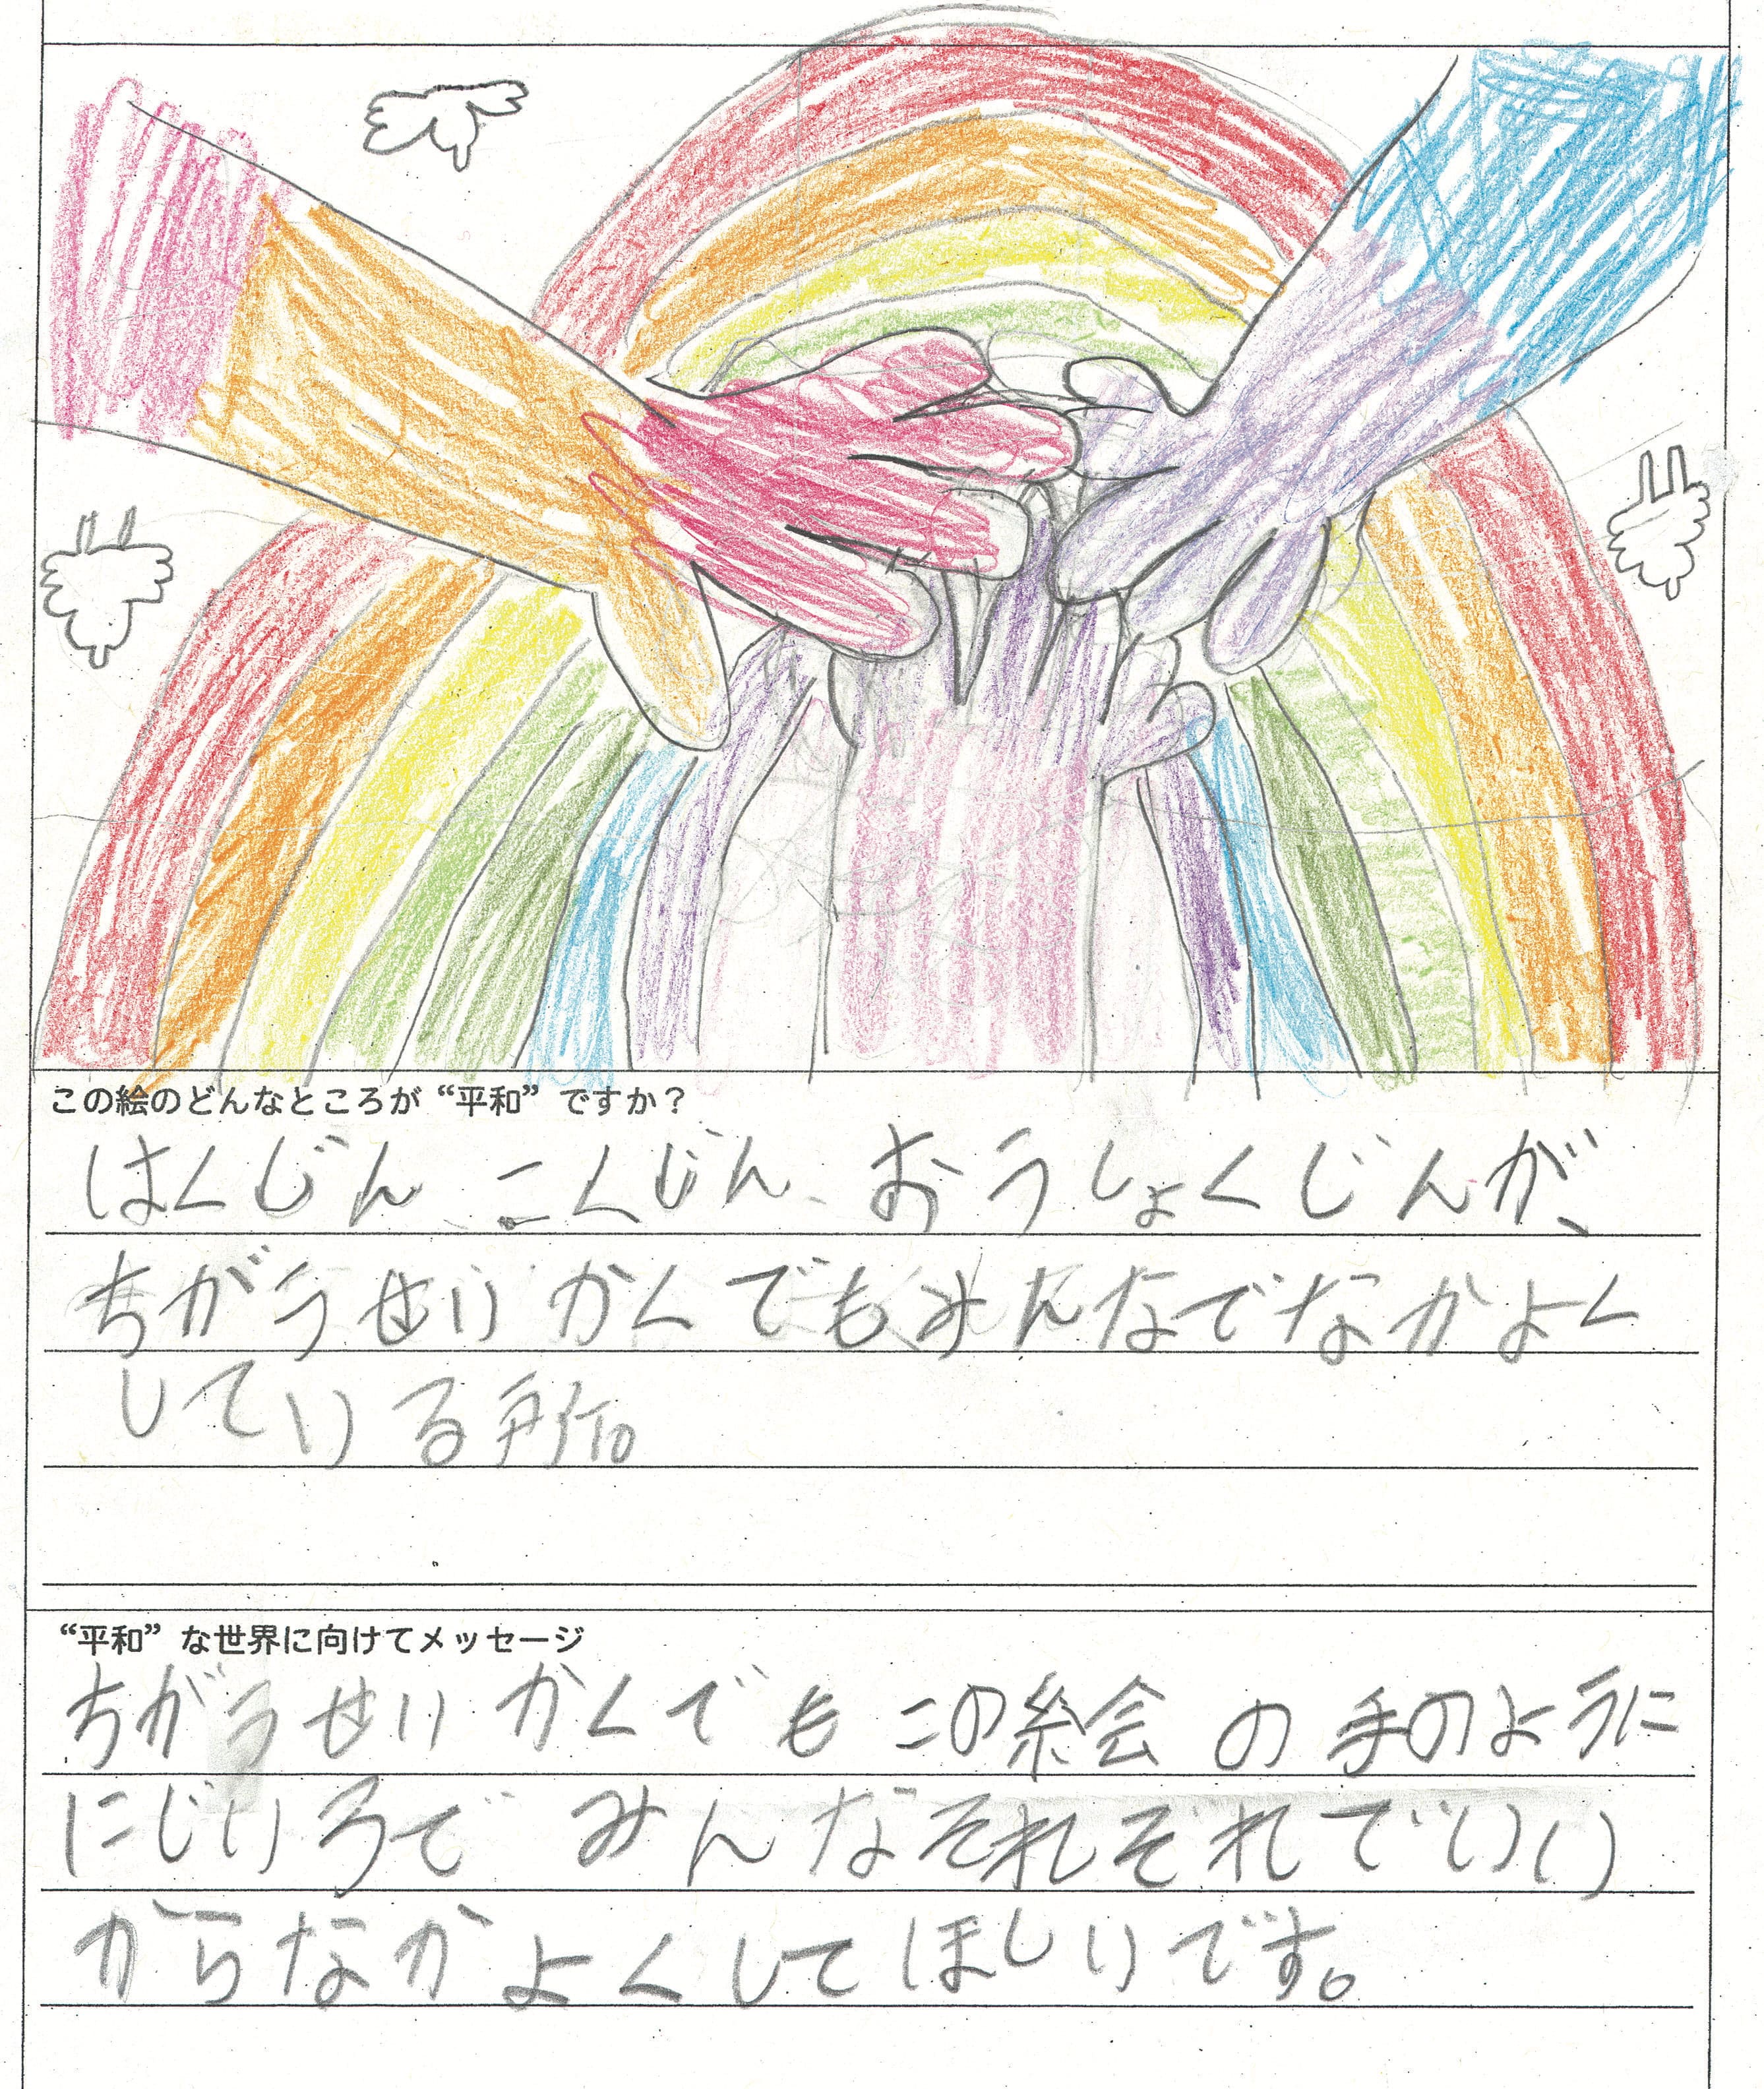 この絵のどんなところが“平和”ですか？
はくじん、こくじん、おうしょくじんが、
ちがうせいかくでもみんなでなかよく
している所。
“平和”な世界に向けてメッセージ
ちがうせいかくでもこの絵の手のように
にじいろでみんなそれぞれでいい
からなかよくしてほしいです。